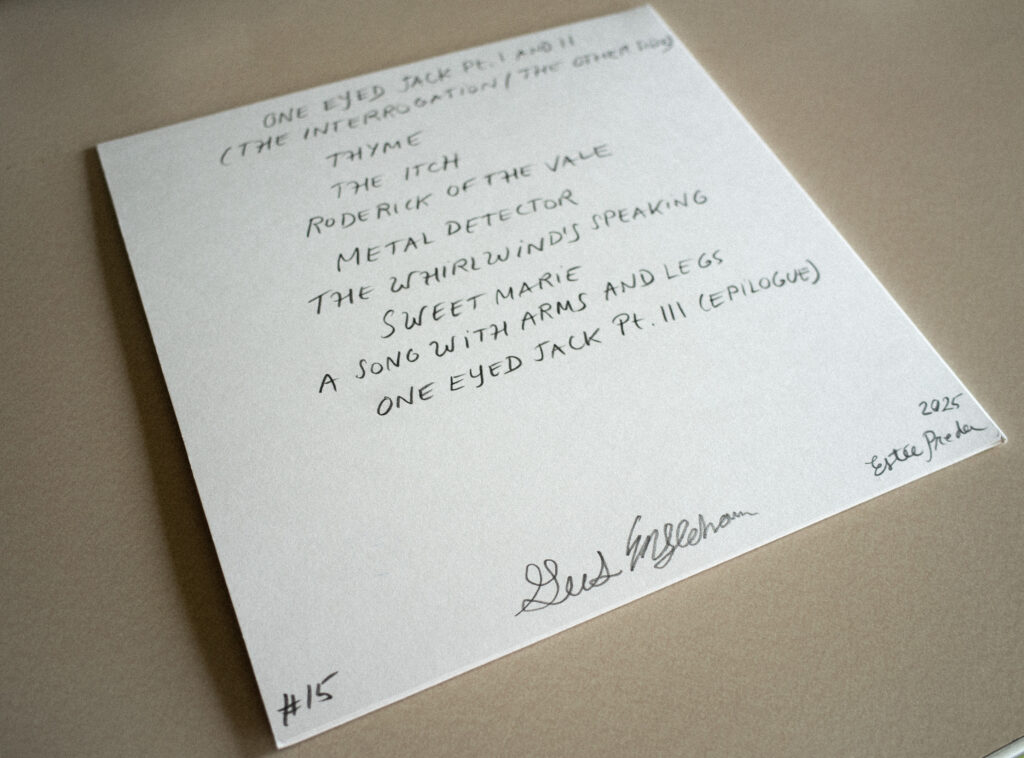 ONE EYED JACK Pt. I AND II
(THE INTERROGATION / THE OTHER SIDE)
THYME
THE ITCH
RODERICK OF THE VALE
METAL DETECTOR
THE WHIRLWIND'S SPEAKING
SWEET MARIE
A SONG WITH ARMS AND LEGS
ONE EYED JACK Pt. III (EPILOGUE)
2025
Estée Preda
Gus Englehorn
#15